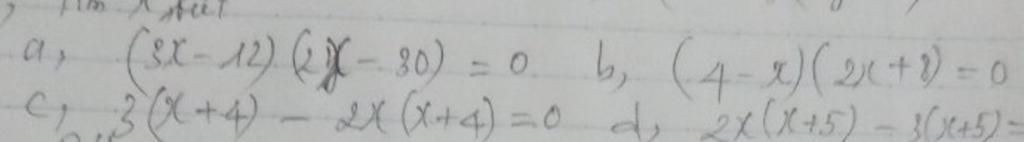 Tìm x, biết
a, (3x - 12)(2x - 30) = 0 b, (4 - x)(2x + 8) = 0
c, 3(x + 4) - 2x(x + 4) = 0 d, 2x(x + 5) - 3(x + 5) =